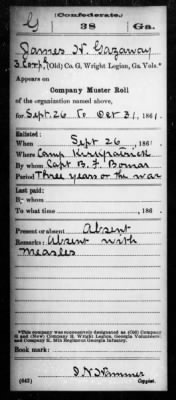 (Confederate.)
G 38 Ga.
James N. Gazaway
3 Corp'l (Old) Co. G, Wright Legion, Ga. Vols.*
Appears on
Company Muster Roll
of the organization named above,
for Sept. 26 To Oct 31, 1861.
Enlisted:
When Sept 26, 186 .
Where Camp Kirkpatrick
By whom Capt B. F. Bomar
Period Three years or the war
Last paid:
By whom
To what time , 186 .
Present or absent Absent
Remarks: Absent with
measles
*This company was successively designated as (Old) Company
G and (New) Company H, Wright Legion, Georgia Volunteers
and Company K, 38th Regiment Georgia Infantry.
Book mark:
(642) Copyist.